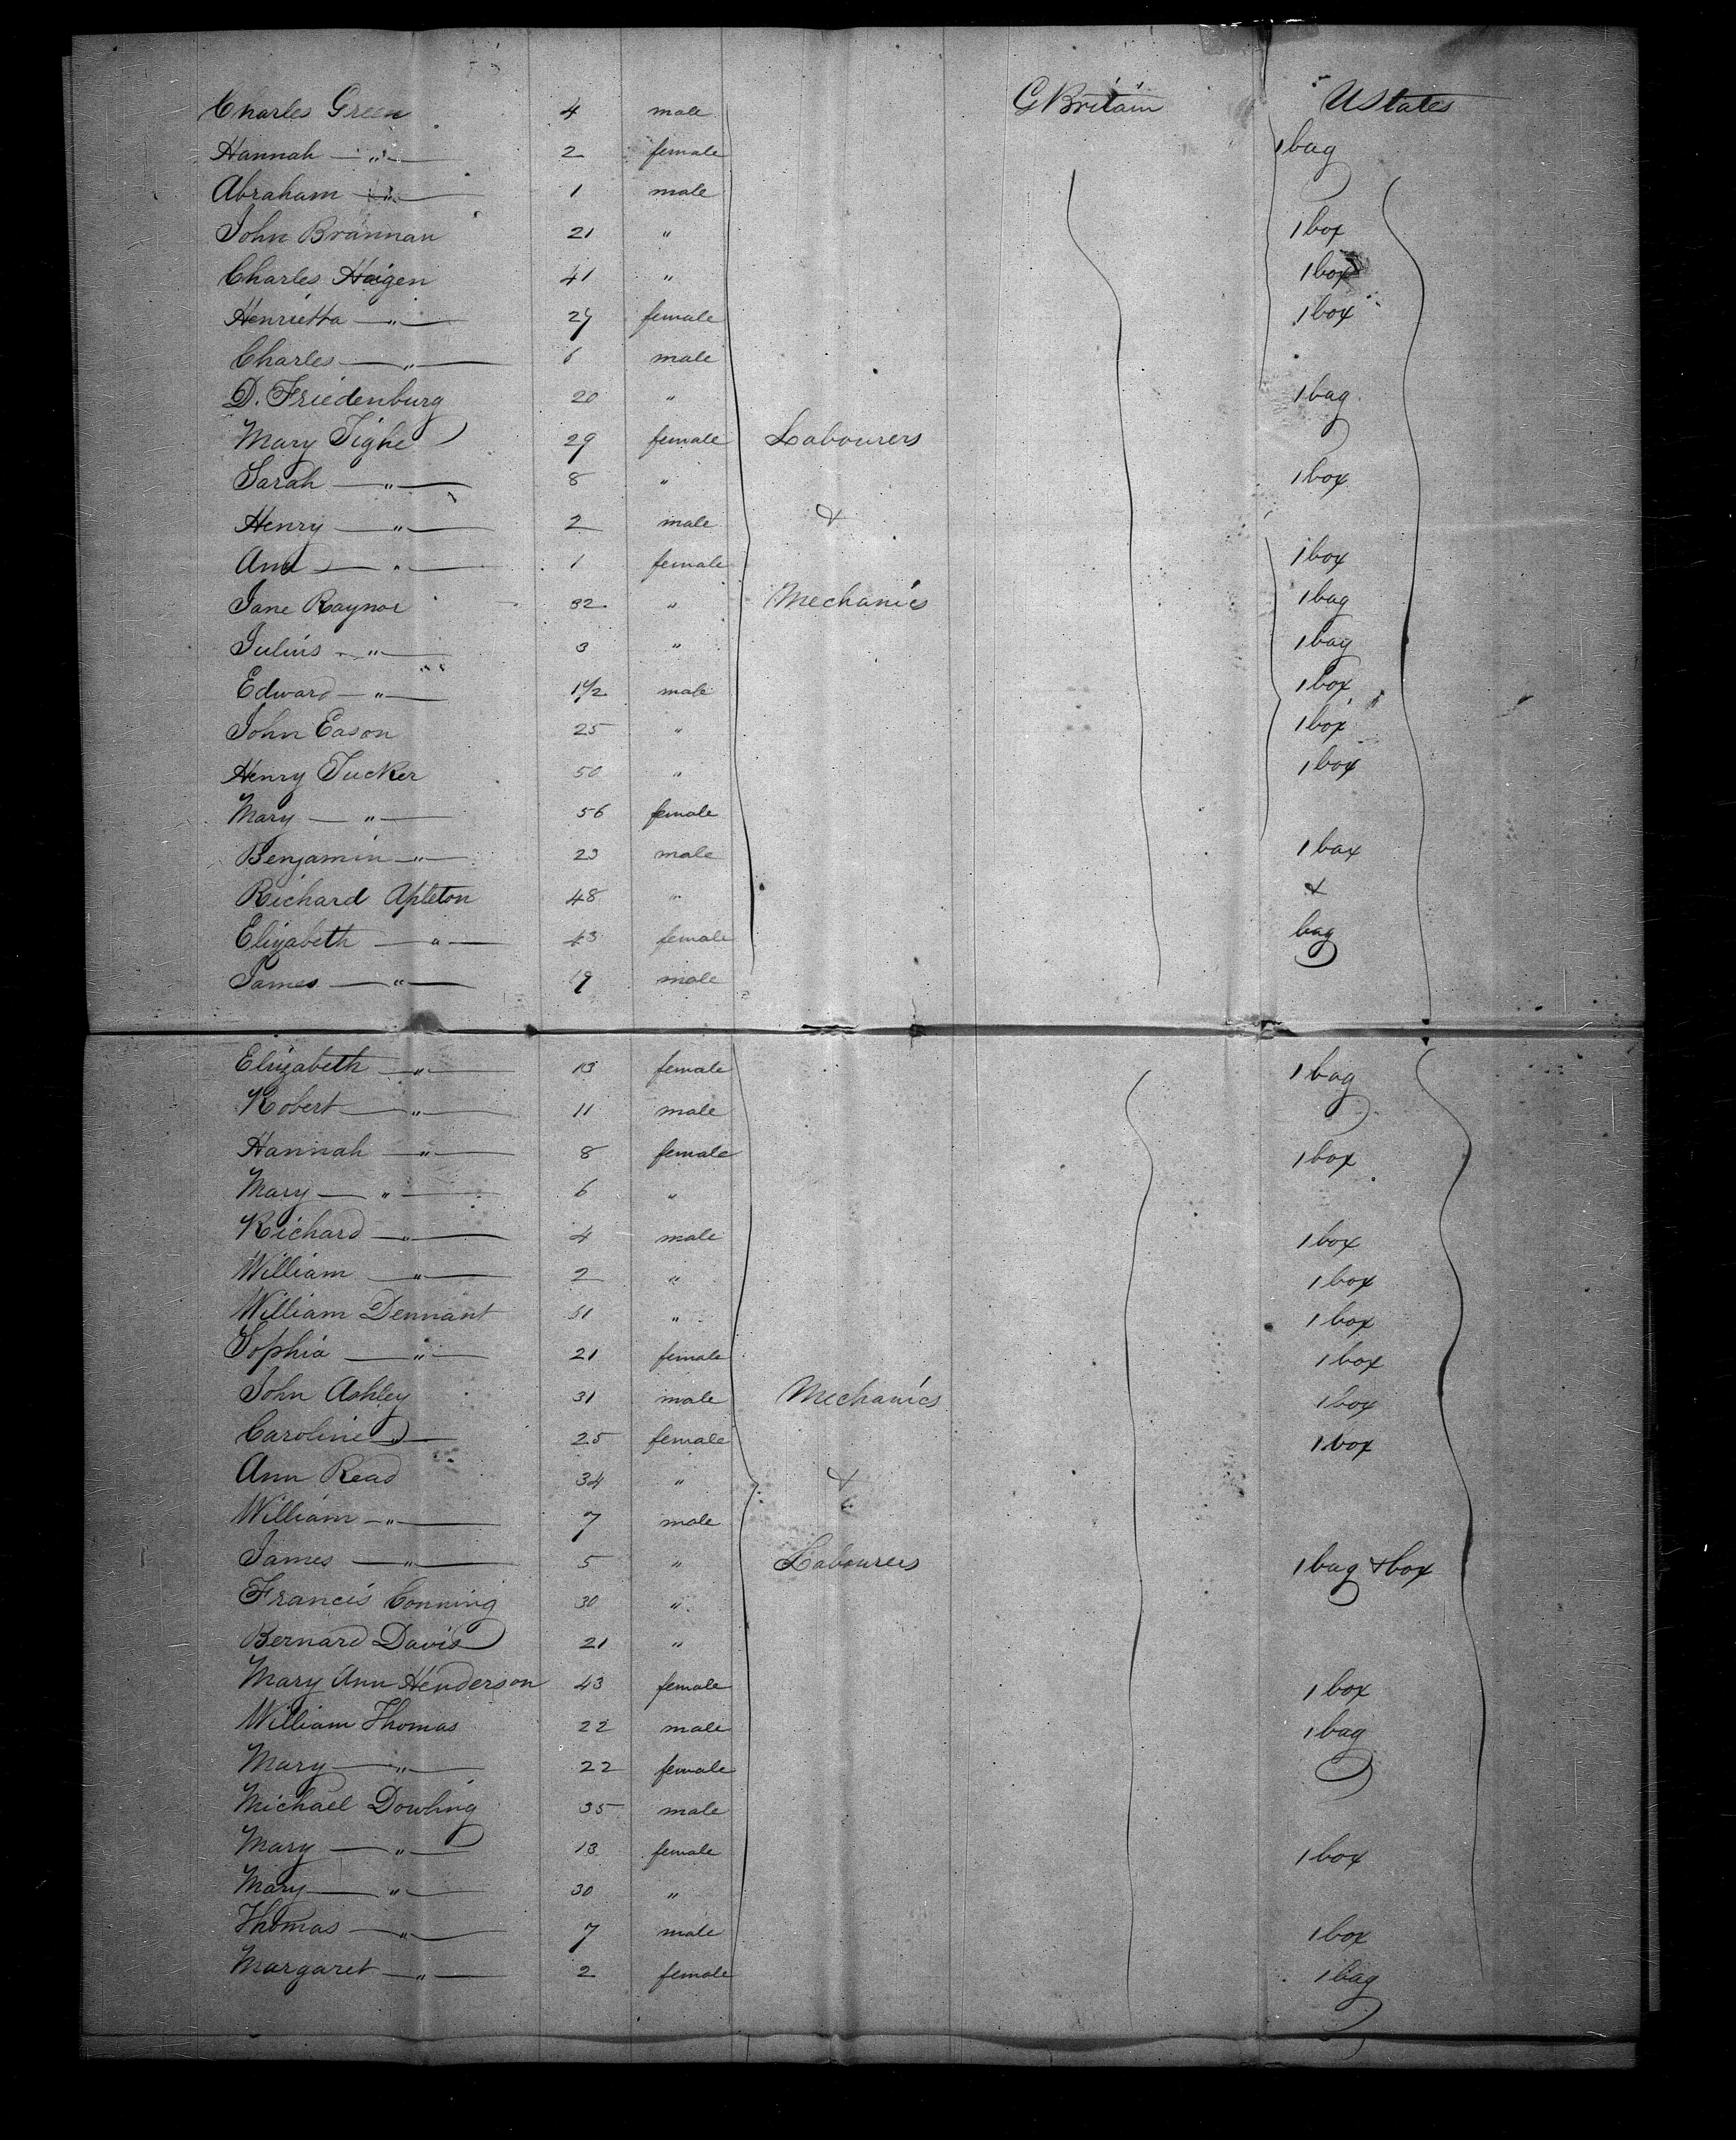 Charles Green 4 male G Britain UStates
Hannah — " — 2 female 1 bag
Abraham — " — 1 male
John Brannan 21 " 1 box
Charles Haigen 41 " 1 box
Henrietta — " — 29 female 1 box
Charles — " — 6 male
D. Friedenburg 20 " 1 bag
Mary Tighe 29 female Labourers
Sarah — " — 8 " 1 box
Henry — " — 2 male &
Ann — " — 1 female 1 box
Jane Raynor 32 " Mechanics 1 bag
Julius — " — 3 " 1 bag
Edward — " — 1 1/2 male 1 box
John Eason 25 " 1 box
Henry Tucker 50 " 1 box
Mary — " — 56 female
Benjamin — " — 23 male 1 box
Richard Apleton 48 " &
Elizabeth — " — 43 female bag
James — " — 19 male
Elizabeth — " — 13 female 1 bag
Robert — " — 11 male
Hannah — " — 8 female 1 box
Mary — " — 6 "
Richard — " — 4 male 1 box
William — " — 2 " 1 box
William Dennant 31 " 1 box
Sophia — " — 21 female 1 box
John Ashley 31 male Mechanics 1 box
Caroline — " — 25 female 1 box
Ann Read 34 " &
William — " — 7 male
James — " — 5 " Labourers 1 bag & box
Francis Conning 30 "
Bernard Davis 21 "
Mary Ann Henderson 43 female 1 box
William Thomas 22 male 1 bag
Mary — " — 22 female
Michael Dowling 35 male
Mary — " — 13 female 1 box
Mary — " — 30 "
Thomas — " — 7 male 1 box
Margaret — " — 2 female 1 bag